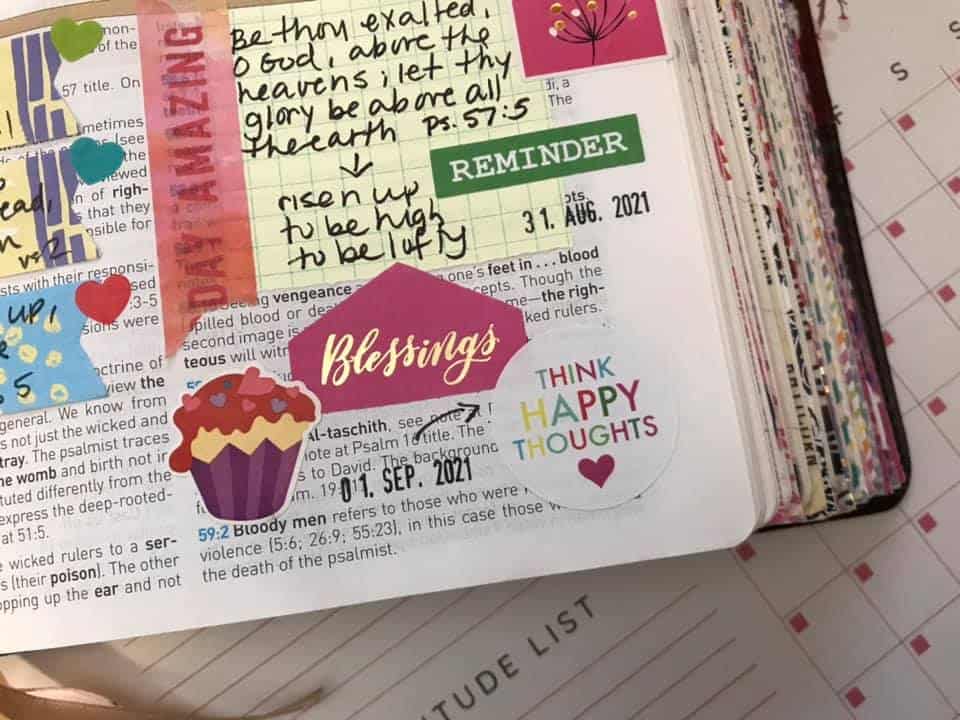 of the
57 title. On
ometimes
(see
the
viewed
n of righ-
s that they
nsible for
ead,
vs 2
sts with their responsi-
:3-5
sions were
up,
5
ctrine of
view the
general. We know from
s not just the wicked and
tray. The psalmist traces
the womb and birth not in
tuted differently from the
express the deep-rooted-
at 51:5.
wicked rulers to a ser-
s (their poison). The other
opping up the ear and not
DAY AMAZING
Be thou exalted,
O God, above the
heavens; let thy
glory be above all
the earth Ps. 57:5
↓
risen up
to be high
to be lofty
di, a
The
REMINDER
ots.
31. AUG. 2021
seeing vengeance a one's feet in . . . blood
spilled blood or dea cepts. Though the
second image is me—the righ-
teous will witn ked rulers.
Blessings
THINK
HAPPY
THOUGHTS
Al-taschith, see note
note at Psalm 16 title. The
s to David. The background
m. 19
01. SEP. 2021
59:2 Bloody men refers to those who were
violence (5:6; 26:9; 55:23), in this case those w
the death of the psalmist.
TUDE LIST
S
S